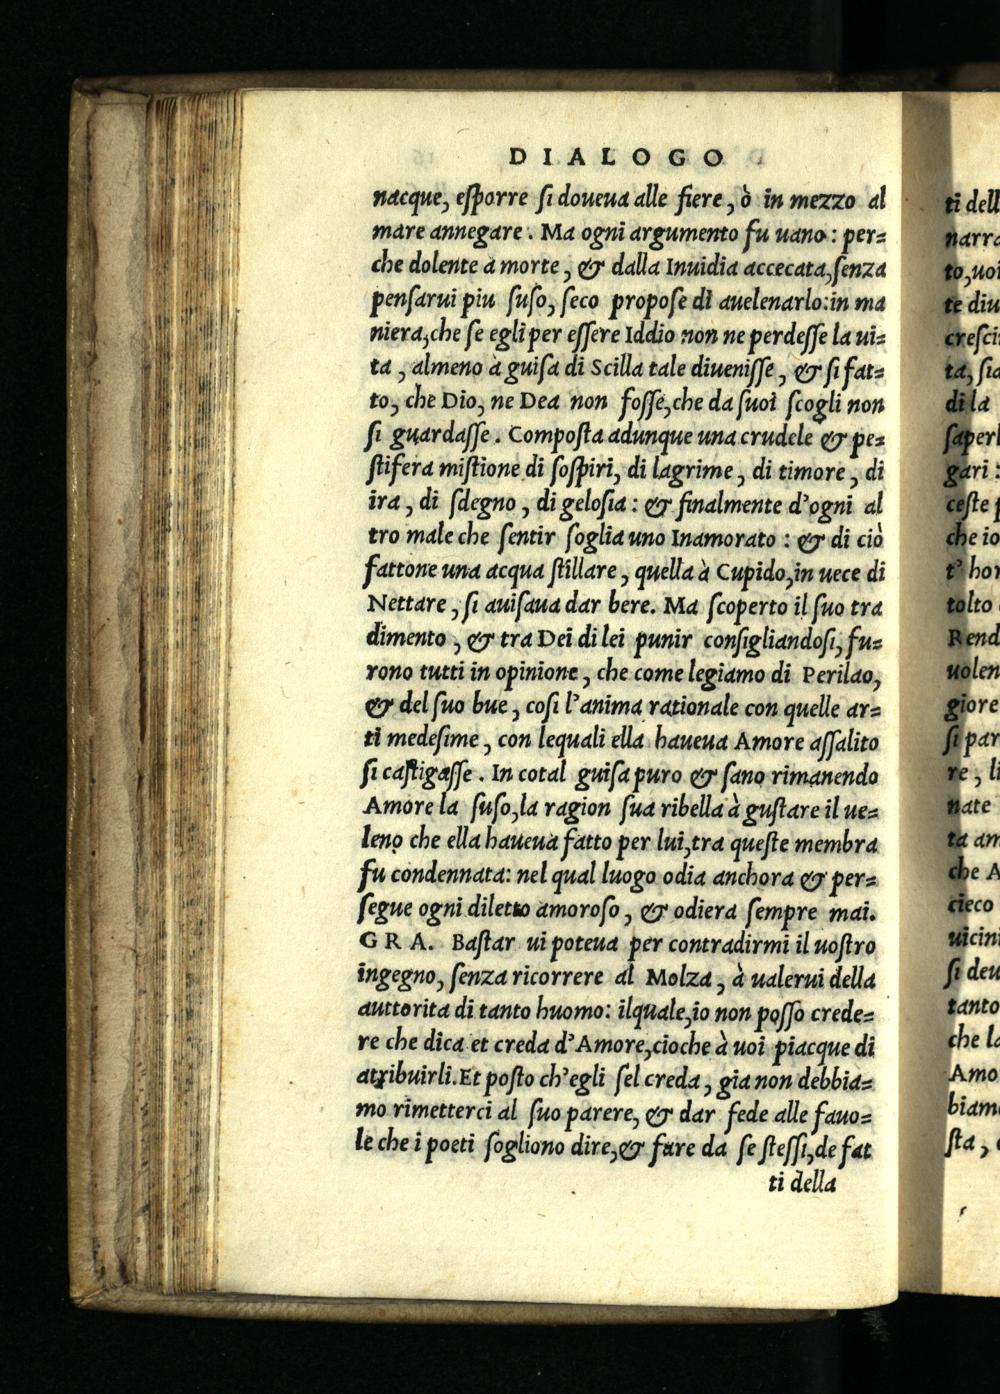 DIALOGO
nacque, eſporre ſi doueua alle fiere, ò in mezzo al
mare annegare. Ma ogni argumento fu uano: per=
che dolente à morte, & dalla Inuidia accecata, ſenza
penſarui piu ſuſo, ſeco propoſe di auelenarlo: in ma
niera, che ſe egli per eſſere Iddio non ne perdeſſe la ui=
ta, almeno à guiſa di Scilla tale diueniſſe, & ſi fat=
to, che Dio, ne Dea non foſſe, che da ſuoi ſcogli non
ſi guardaſſe. Compoſta adunque una crudele & pe=
ſtifera miſtione di ſoſpiri, di lagrime, di timore, di
ira, di ſdegno, di geloſia: & finalmente d'ogni al
tro male che ſentir ſoglia uno Inamorato: & di ciò
fattone una acqua ſtillare, quella à Cupido, in uece di
Nettare, ſi auiſaua dar bere. Ma ſcoperto il ſuo tra
dimento, & tra Dei di lei punir conſigliandoſi, fu=
rono tutti in opinione, che come legiamo di Perilao,
& del ſuo bue, coſi l'anima rationale con quelle ar=
ti medeſime, con lequali ella haueua Amore aſſalito
ſi caſtigaſſe. In cotal guiſa puro & ſano rimanendo
Amore la ſuſo, la ragion ſua ribella à guſtare il ue=
leno che ella haueua fatto per lui, tra queſte membra
fu condennata: nel qual luogo odia anchora & per=
ſegue ogni diletto amoroſo, & odiera ſempre mai.
GRA. Baſtar ui poteua per contradirmi il uoſtro
ingegno, ſenza ricorrere al Molza, à ualerui della
auttorita di tanto huomo: ilquale, io non poſſo crede=
re che dica et creda d'Amore, cioche à uoi piacque di
attribuirli. Et poſto ch'egli ſel creda, gia non debbia=
mo rimetterci al ſuo parere, & dar fede alle fauo=
le che i poeti ſogliono dire, & fare da ſe ſteſſi, de fat
ti della
ti dell
narra
to, uoi
te diu
creſci
ta, ſia
di la
ſaperl
gari:
ceſte
che io
t' hor
tolto
Rend
uolen
giore
ſi par
re, li
nate
ta am
che A
cieco
uicini
ſi deu
tanto
che la
Amo
biam
ſta,